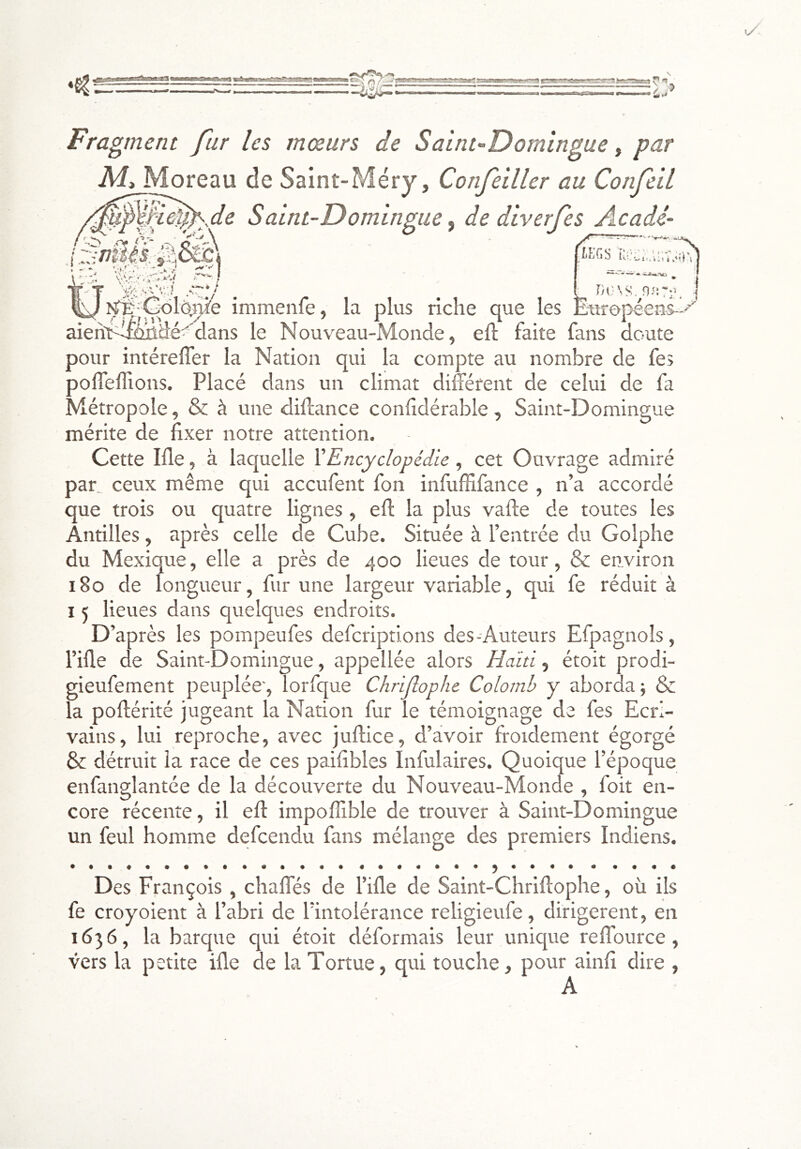 Fragment ſur les mœurs de Saint-Domingue, par
M. Moreau de Saint-Méry, Conſeiller au Conſeil
ſupérieur de Saint-Domingue, de diverſes Acadé-
mies, &c.
LEGS
UNE Colonie immenſe, la plus riche que les Européens
aient fondé dans le Nouveau-Monde, eſt faite ſans doute
pour intéreſſer la Nation qui la compte au nombre de ſes
poſſeſſions. Placé dans un climat différent de celui de ſa
Métropole, & à une diſtance conſidérable, Saint-Domingue
mérite de fixer notre attention.
Cette Iſle, à laquelle l'Encyclopédie, cet Ouvrage admiré
par ceux même qui accuſent ſon inſuffiſance, n'a accordé
que trois ou quatre lignes, eſt la plus vaſte de toutes les
Antilles, après celle de Cube. Située à l'entrée du Golphe
du Mexique, elle a près de 400 lieues de tour, & environ
180 de longueur, ſur une largeur variable, qui ſe réduit à
15 lieues dans quelques endroits.
D'après les pompeuſes deſcriptions des-Auteurs Eſpagnols,
l'iſle de Saint-Domingue, appellée alors Haïti, étoit prodi-
gieuſement peuplée, lorſque Chriſtophe Colomb y aborda; &
la poſtérité jugeant la Nation ſur le témoignage de ſes Ecri-
vains, lui reproche, avec juſtice, d'avoir froidement égorgé
& détruit la race de ces paiſibles Inſulaires. Quoique l'époque
enſanglantée de la découverte du Nouveau-Monde, ſoit en-
core récente, il eſt impoſſible de trouver à Saint-Domingue
un ſeul homme deſcendu ſans mélange des premiers Indiens.
. . . . . . . . . . . . . . . . . . . . . . , . . . . . . . . .
Des François, chaſſés de l'iſle de Saint-Chriſtophe, où ils
ſe croyoient à l'abri de l'intolérance religieuſe, dirigerent, en
1636, la barque qui étoit déſormais leur unique reſſource,
vers la petite iſle de la Tortue, qui touche, pour ainſi dire,
A